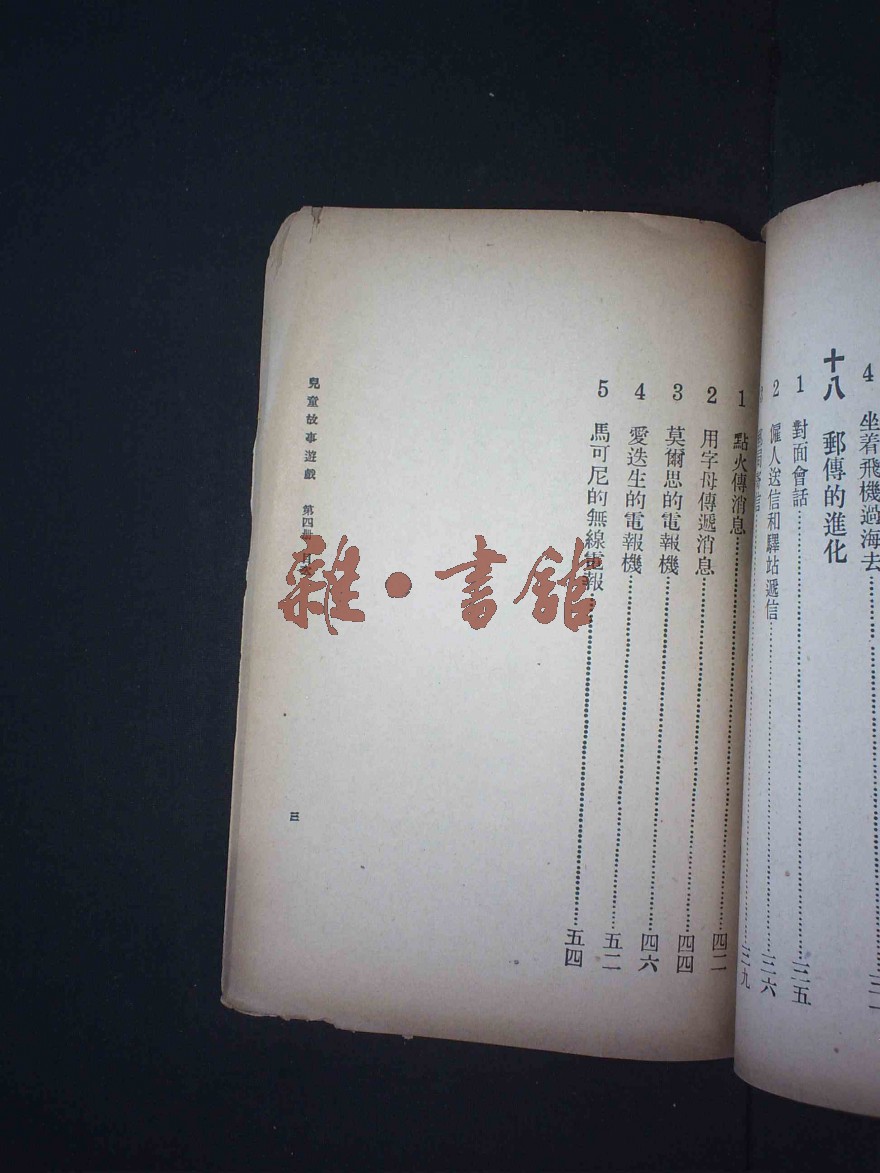 4 坐着飛機過海去……三一
十八 郵傳的進化
1 對面會話……三五
2 僱人送信和驛站遞信……三六
信……三九
1 點火傳消息……四二
2 用字母傳遞消息……四四
3 莫爾思的電報機……四六
4 愛迭生的電報機……五二
5 馬可尼的無線電報……五四
兒童故事遊戲 第四冊 三
雜·書館